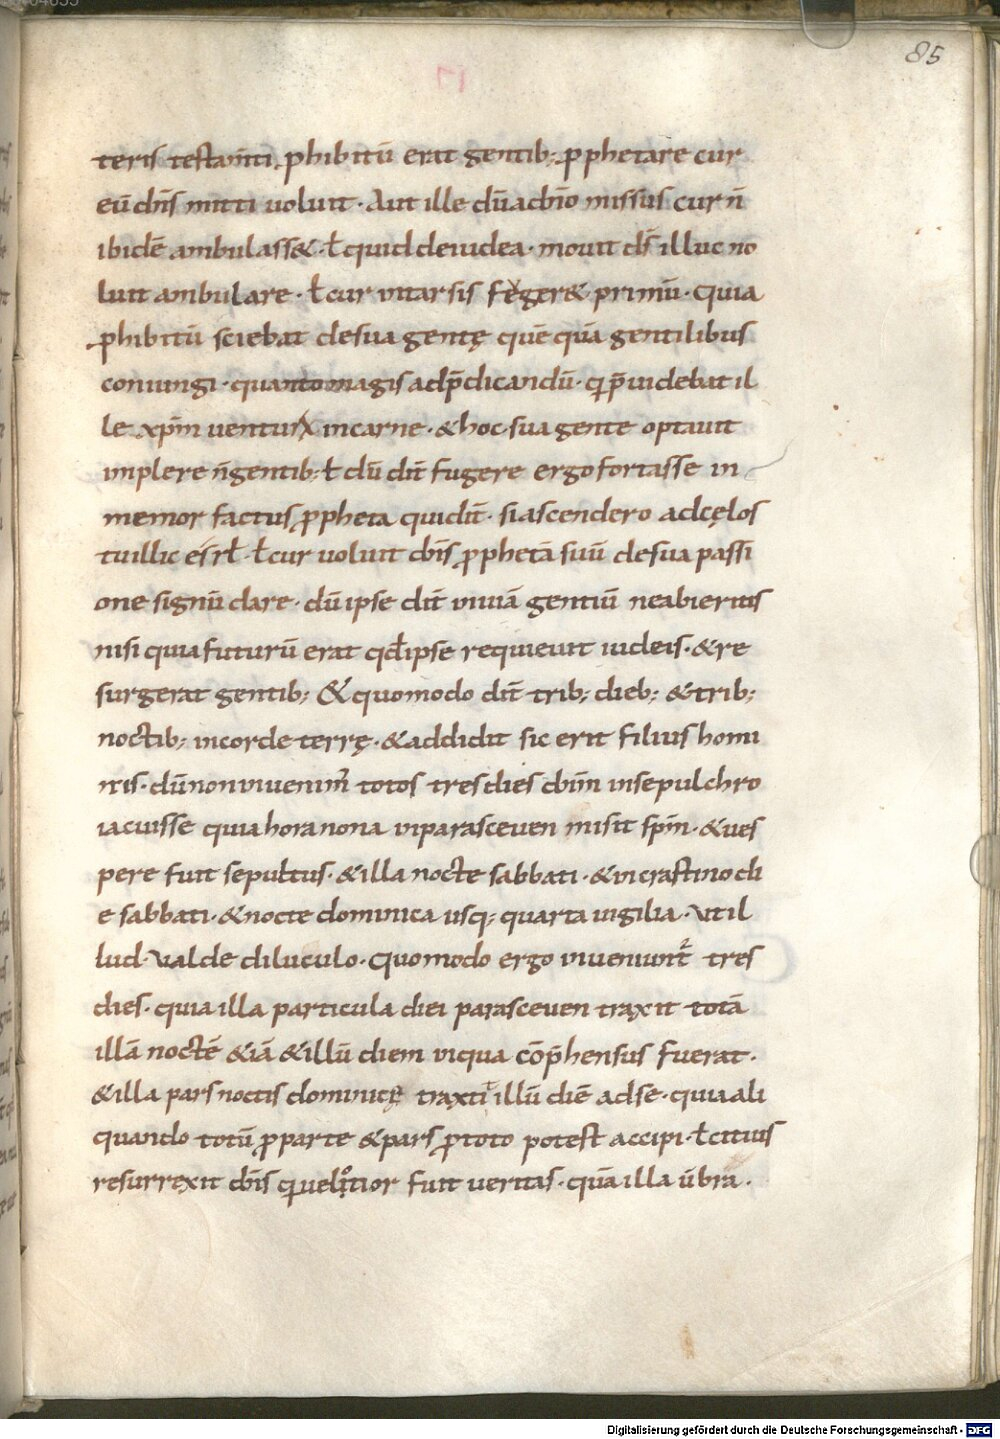 85
teris testam̄ti ꝓhibitū erat gentib; ꝓphetare cur
eū dn̄s mitti uoluit · Aut ille dū a dn̄o missus cur n̄
ibidē ambulass& · ł quid de iudea · mouit ds̄ illuc no
luit ambulare · ł cur in tarsis fuger& primū · quia
ꝓhibitū sciebat de sua gentę quē quā gentilibus
coniungi · quanto magis ad p̄dicandū · qi p̄uidebat il
le xp̄m uenturū in carne · & hoc sua gente optauit
implere n̄ gentib; ł dū dix̄ fugere ergo fortasse in
memor factus ꝓpheta quidix̄ · si ascendero ad cęlos
tu illic es rł · ł cur uoluit dn̄s ꝓphetā suū de sua passi
one signū dare · dū ipse dix̄ in uiā gentiū ne abieritis
nisi quia futurū erat qd̄ ipse requieuit iudeis · & re
surgerat gentib; & quomodo dix̄ trib; dieb; & trib;
noctib; in corde terrę · & addidit sic erit filius homi
nis · dū non inuenim̄ totos tres dies dn̄m in sepulchro
iacuisse quia hora nona in parasceuen misit sp̄m · & ues
pere fuit sepultus · & illa nocte sabbati · & in crastino di
e sabbati · & nocte dominica usq; quarta uigilia · ut il
lud · ualde diluculo · quomodo ergo inueniunt̄ tres
dies · quia illa particula diei parasceuen traxit totā
illā noctē & iā & illū diem in qua cōp̄hensus fuerat ·
& illa pars noctis dominicę traxit illū diē ad se · quia ali
quando totū ꝓ parte & pars ꝓ toto potest accipi · ł citius
resurrexit dn̄s qi uelotior fuit ueritas · quā illa ūbra ·
Digitalisierung gefördert durch die Deutsche Forschungsgemeinschaft - DFG